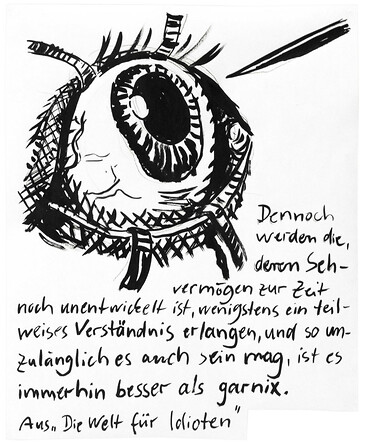 Dennoch
werden die,
deren Seh-
vermögen zur Zeit
noch unentwickelt ist, wenigstens ein teil-
weises Verständnis erlangen, und so un-
zulänglich es auch sein mag, ist es
immerhin besser als garnix.
Aus „Die Welt für Idioten"